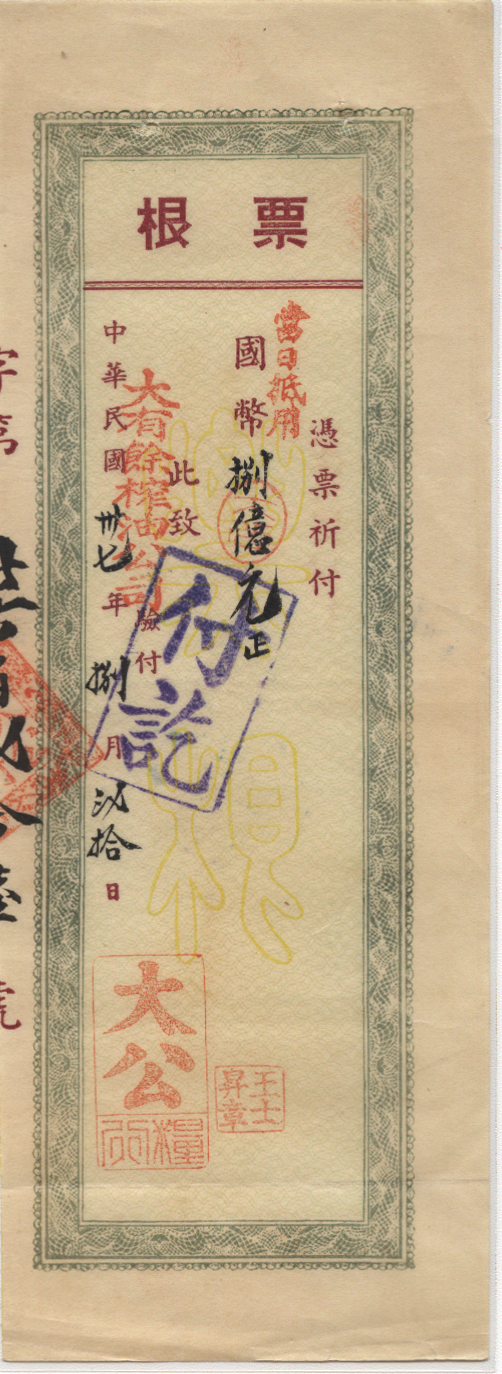 票根
憑票祈付
當日抵用
國幣捌億元正
此致
大有餘榨油公司
驗付
中華民國卅七年捌月弍拾日
付訖
大公
糧行
王士昇章